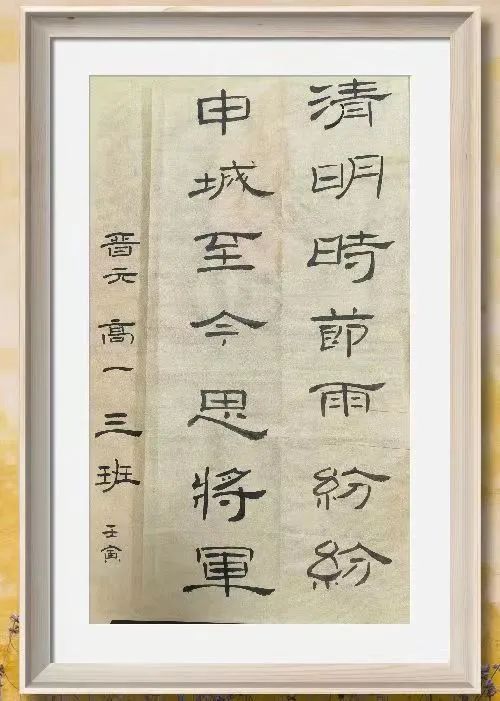 清明時節雨紛紛
申城至今思將軍
晋元高一三班
壬寅